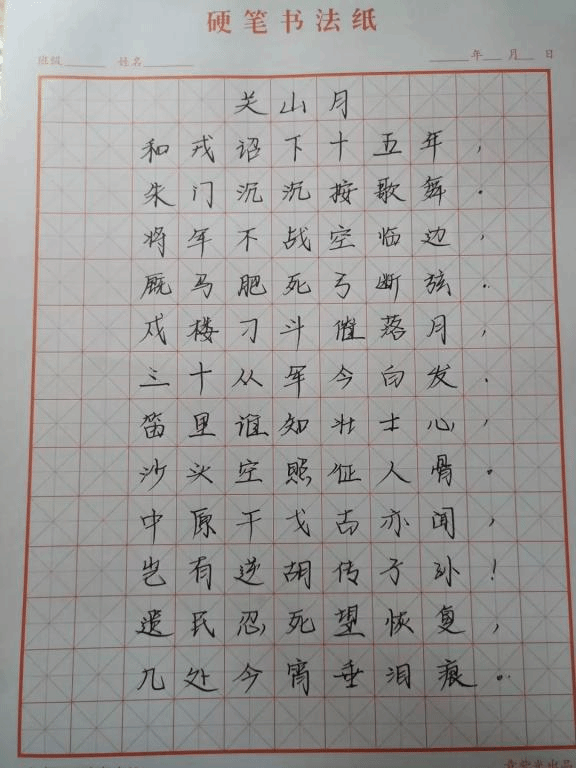 硬笔书法纸
班级 姓名 年 月 日
关山月
和戎诏下十五年,
朱门沉沉按歌舞.
将军不战空临边,
厩马肥死弓断弦.
戍楼刁斗催落月,
三十从军今白发.
笛里谁知壮士心,
沙头空照征人骨。
中原干戈古亦闻,
岂有逆胡传子孙!
遗民忍死望恢复,
几处今宵垂泪痕。